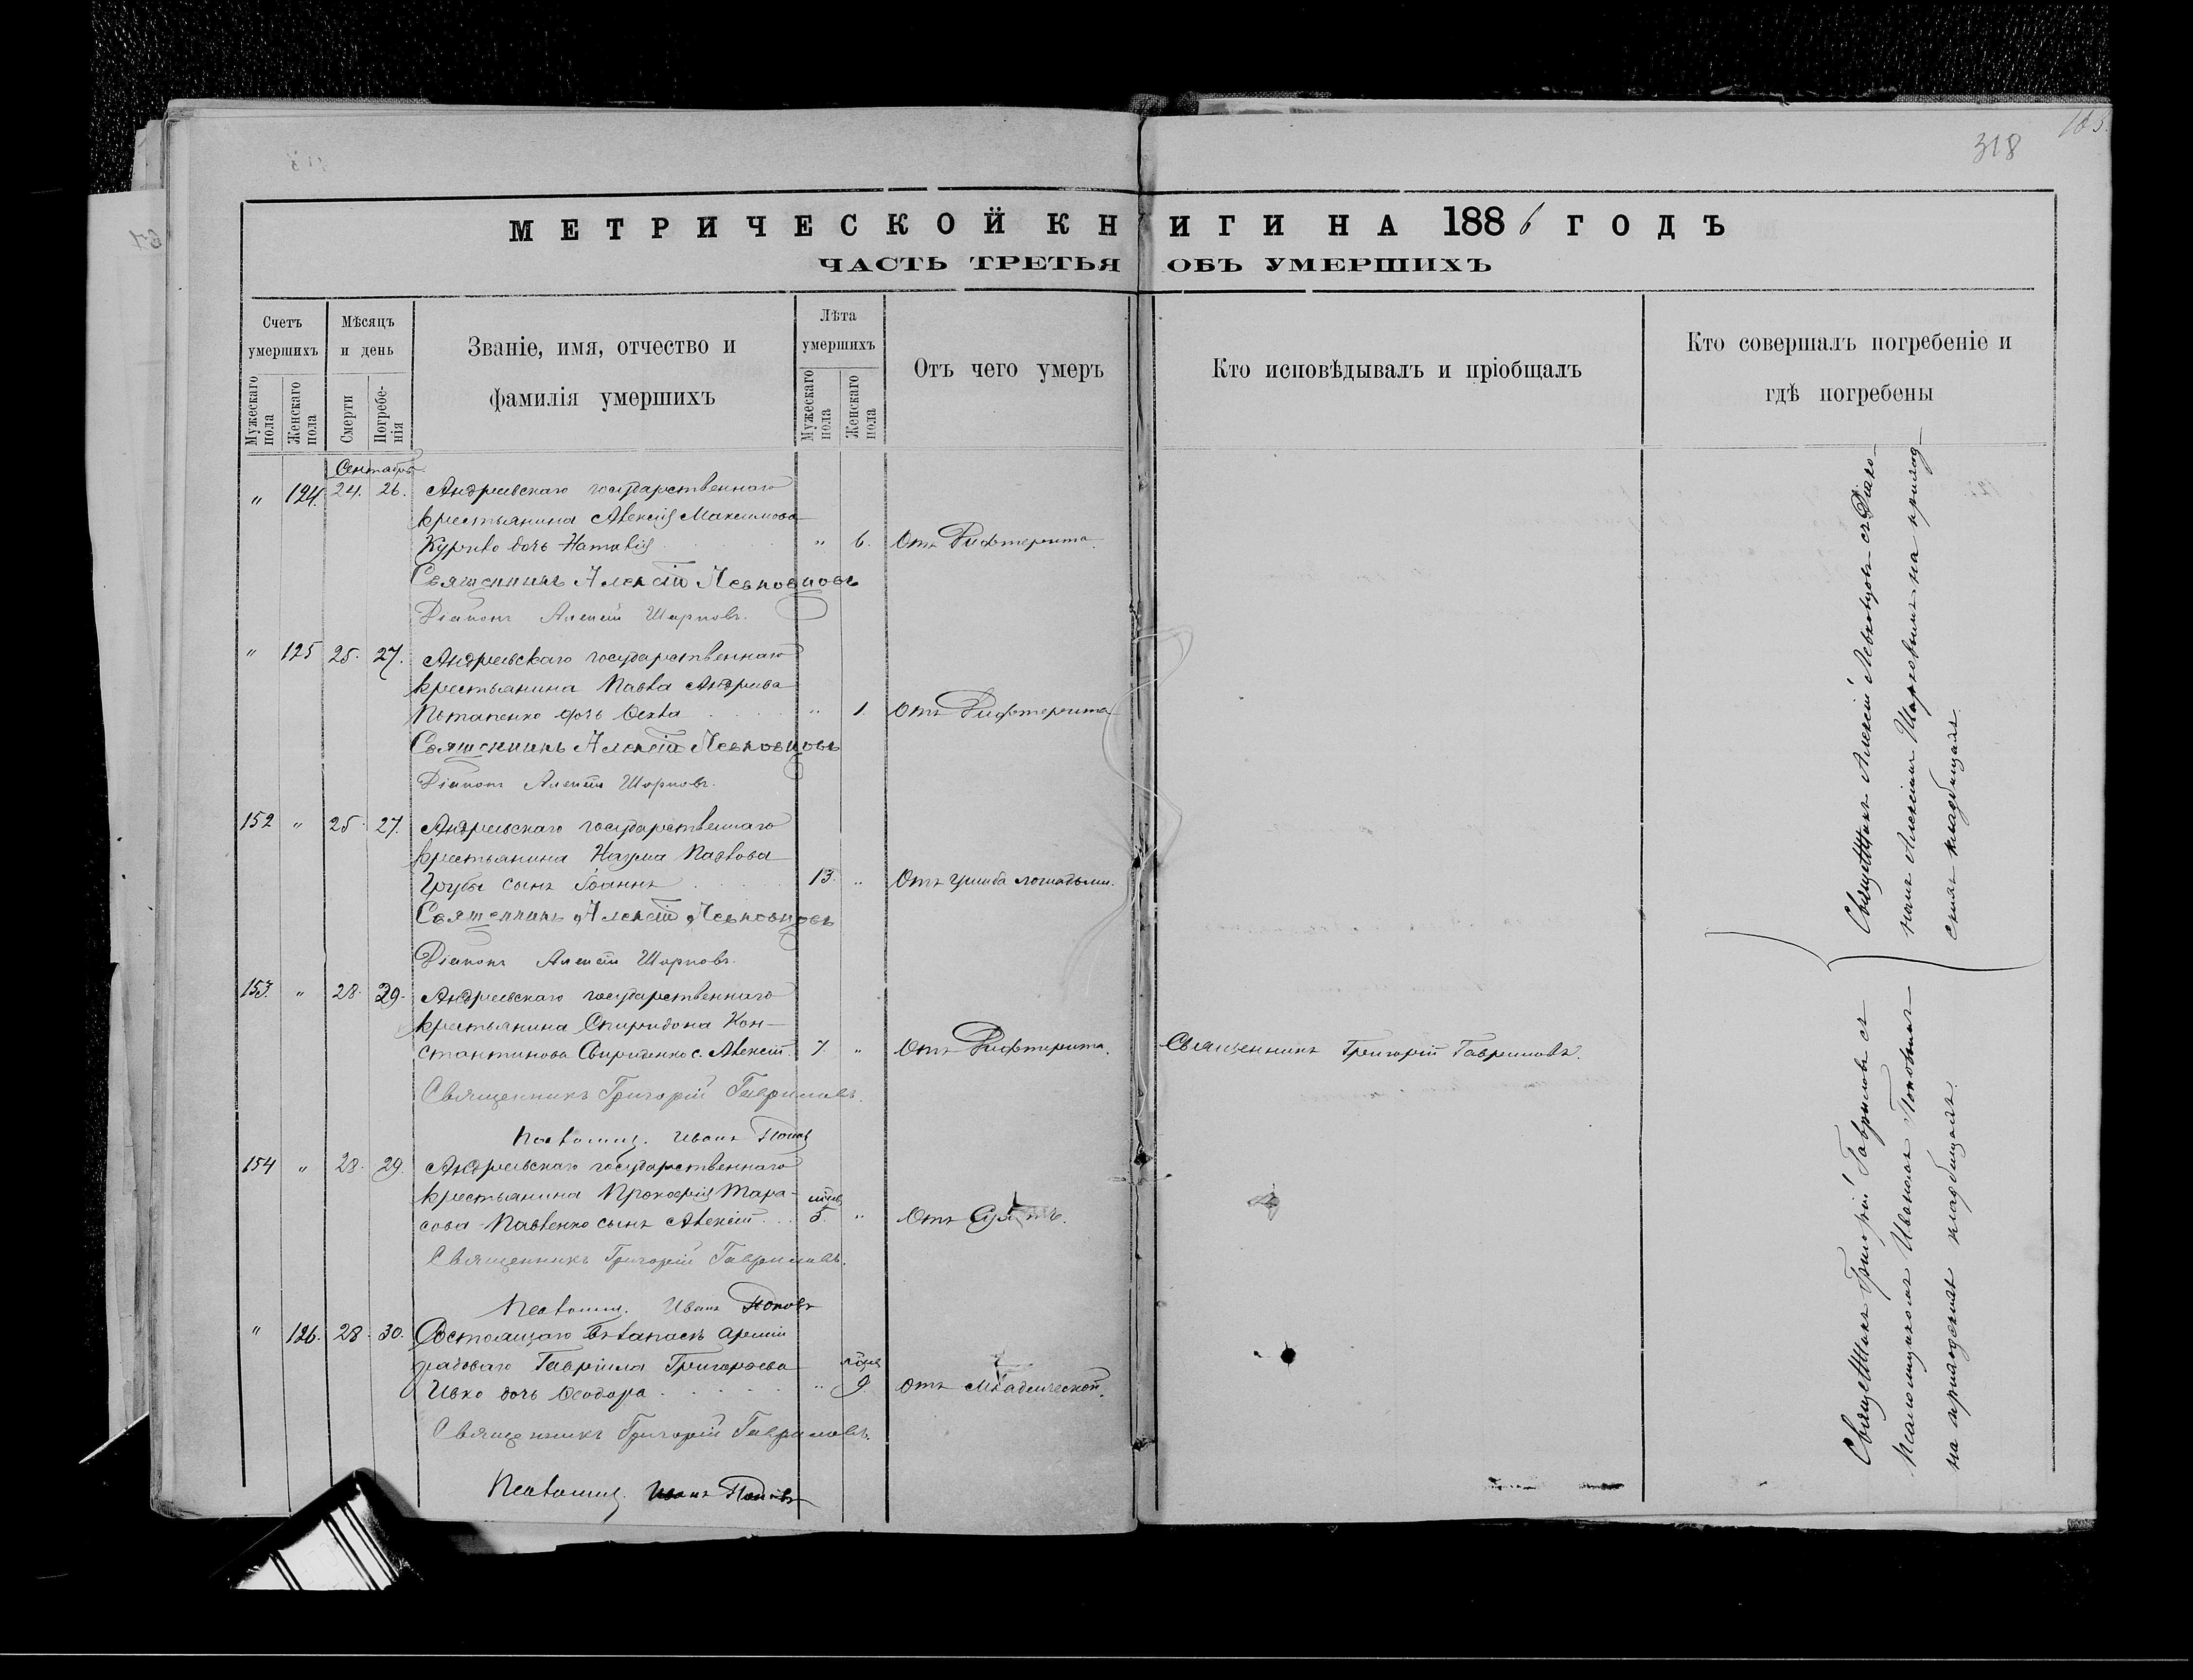 318
МЕТРИЧЕСКОЙ КНИГИ НА 1886 ГОДЪ
ЧАСТЬ ТРЕТЬЯ ОБЪ УМЕРШИХЪ
Счетъ умершихъ
Мужескаго пола
Женскаго пола
Мѣсяцъ и день
Смерти
Погребенія
Званіе, имя, отчество и фамилія умершихъ
Лѣта умершихъ
Мужескаго пола
Женскаго пола
Отъ чего умеръ
Кто исповѣдывалъ и пріобщалъ
Кто совершалъ погребеніе и гдѣ погребены
Сентябрь
" 124. 24. 26. Андреевскаго государственнаго
крестьянина Алексія Максимова
дочь Наталія " 6. Отъ Дифтерита.
Священникъ Алексій Левковцовъ
Діаконъ Алексій Шарповъ.
" 125 25. 27. Андреевскаго государственнаго
крестьянина Павла Андреева
Потапенко дочь Фекла " 1. Отъ Дифтерита
Священникъ Алексій Левковцовъ
Діаконъ Алексій Шарповъ.
152 " 25. 27. Андреевскаго государственнаго
крестьянина Наума Павлова
Грубы сынъ Іоаннъ 13. " Отъ ушиба лошадьми.
Священникъ Алексій Левковцовъ
Діаконъ Алексій Шарповъ.
153. " 28. 29. Андреевскаго государственнаго
крестьянина Спиридона Кон-
стантинова Свириденко с. Алексій. 7. " Отъ Дифтерита. Священникъ Григорій Гавриловъ.
Священникъ Григорій Гавриловъ.
Псаломщ. Иванъ Поповъ
154 " 28. 29. Андреевскаго государственнаго
крестьянина Прокофія Тара-
сова Павленко сынъ Алексій 5. " Отъ
Священникъ Григорій Гавриловъ.
Псаломщ. Иванъ Поповъ
" 126. 28. 30. Состоящаго въ запасѣ арміи
рядоваго Гавріила Григорьева
Ивко дочь Ѳеодора " 9 Отъ Младенческой.
Священникъ Григорій Гавриловъ.
Псаломщ. Иванъ Поповъ
Священникъ Алексій Левковцовъ съ Діако-
номъ Алексіемъ Шарповымъ на приход-
скомъ кладбищѣ.
Священникъ Григорій Гавриловъ съ
Псаломщикомъ Иваномъ Поповымъ
на приходскомъ кладбищѣ.